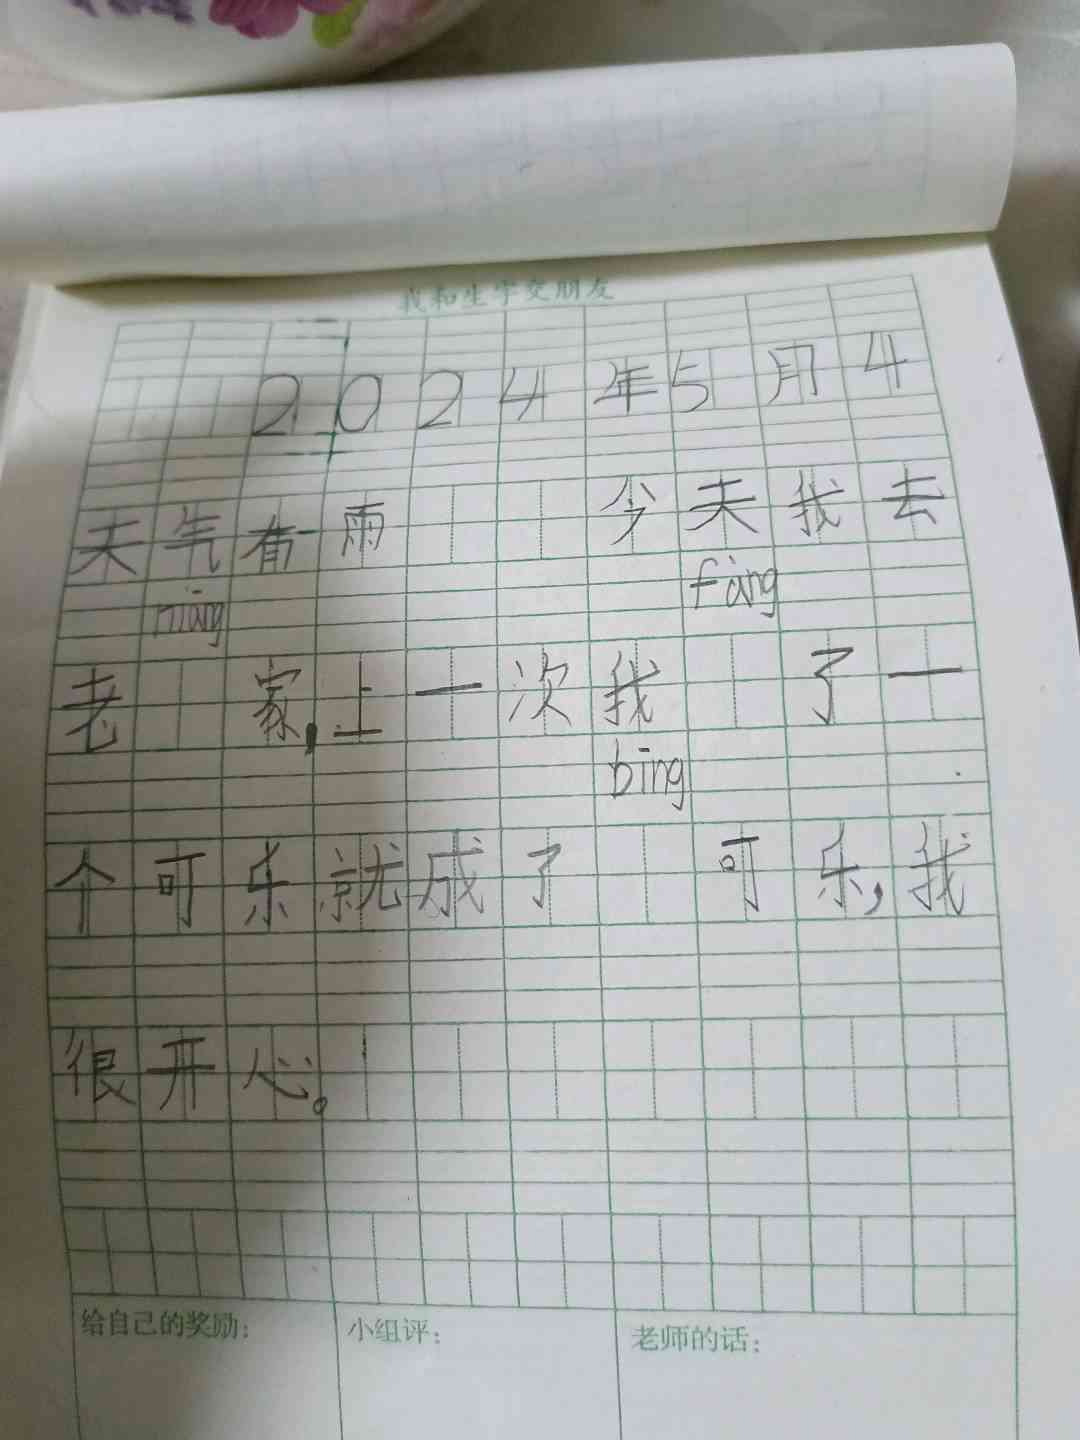 我和生字交朋友
2024年5月4
天气有雨 今天我去
老niáng家,上一次我fàng了一
个可乐就成了bīng可乐,我
很开心。
给自己的奖励: 小组评: 老师的话: